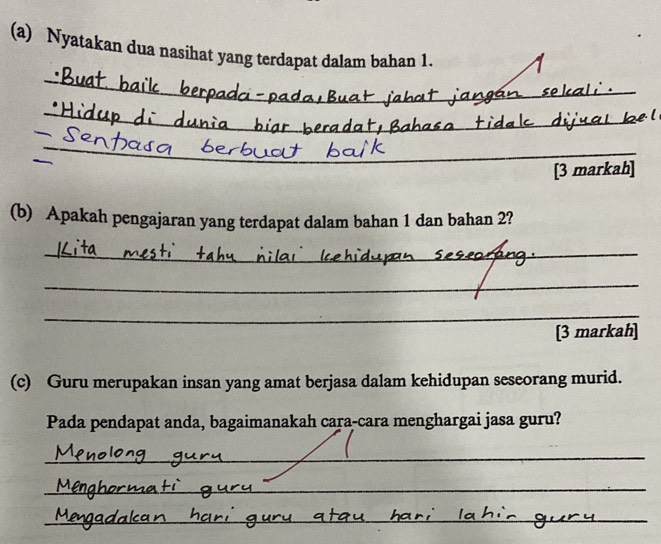 (a) Nyatakan dua nasihat yang terdapat dalam bahan 1.
•Buat baik berpada-pada, Buat jahat jangan sekali.
•Hidup di dunia biar beradat, Bahasa tidak dijual bel
- Sentiasa berbuat baik
-
[3 markah]
(b) Apakah pengajaran yang terdapat dalam bahan 1 dan bahan 2?
Kita mesti tahu nilai kehidupan seseorang.
[3 markah]
(c) Guru merupakan insan yang amat berjasa dalam kehidupan seseorang murid.
Pada pendapat anda, bagaimanakah cara-cara menghargai jasa guru?
Menolong guru
Menghormati guru
Mengadakan hari guru atau hari lahir guru